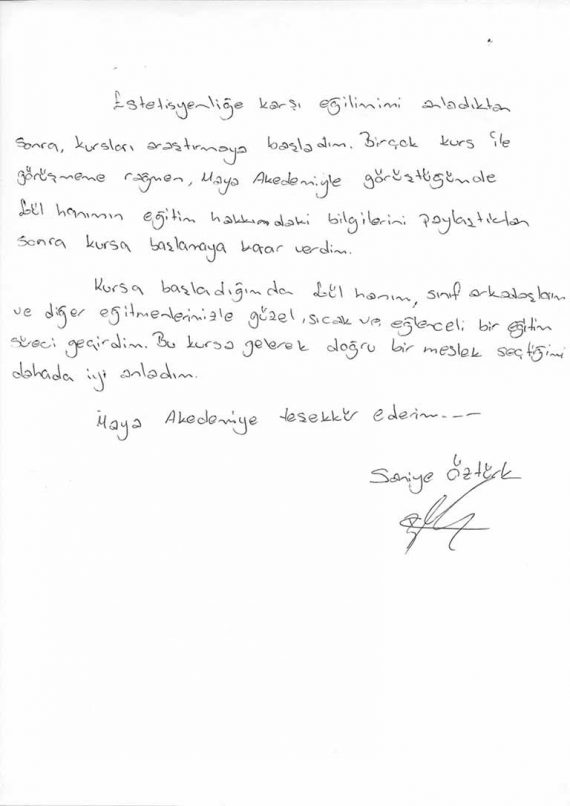 Estetisyenliğe karşı eğilimimi anladıktan
sonra, kursları araştırmaya başladım. Birçok kurs ile
görüşmeme rağmen, Maya Akedemiyle görüştüğümde
Gül hanımın eğitim hakkındaki bilgilerini paylaştıktan
sonra kursa başlamaya karar verdim.
Kursa başladığımda Gül hanım, sınıf arkadaşlarım
ve diğer eğitmenlerimizle güzel, sıcak ve eğlenceli bir eğitim
süreci geçirdim. Bu kursa gelerek doğru bir meslek seçtiğimi
dahada iyi anladım.
Maya Akedemiye teşekkür ederim...
Saniye Öztürk